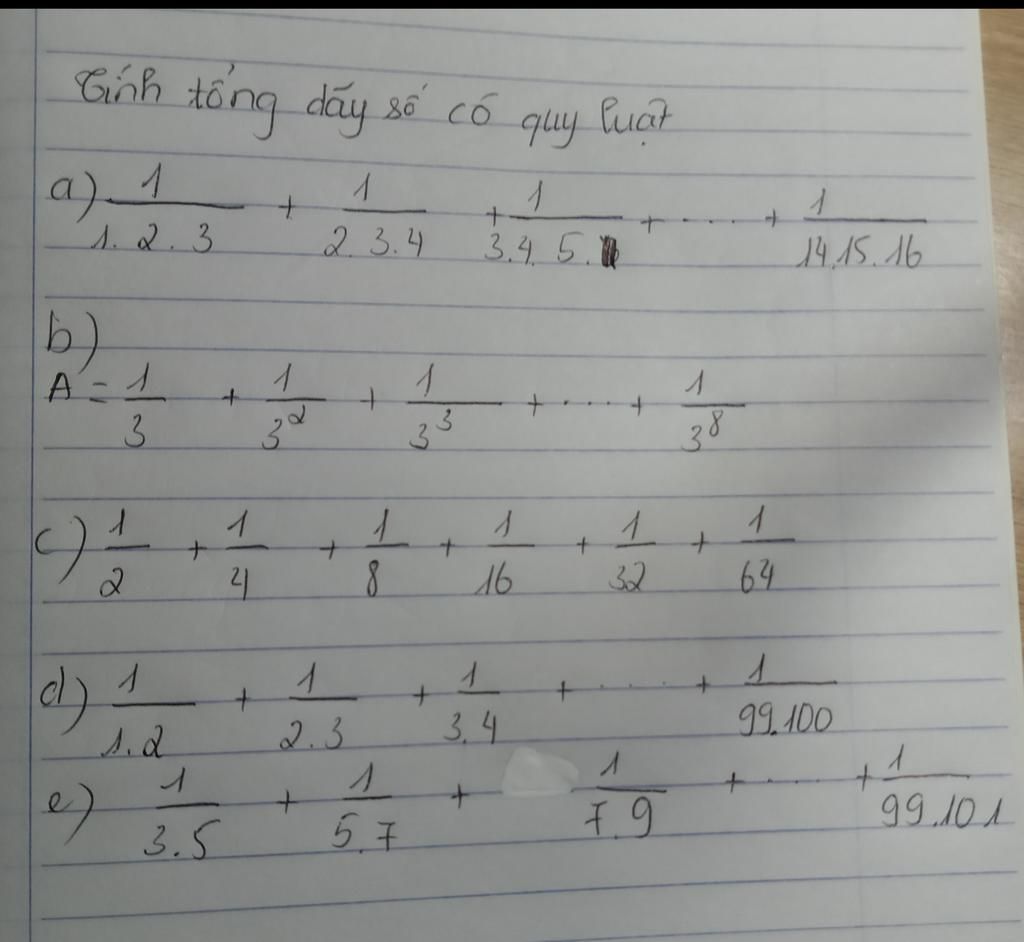 Tính tổng dãy số có quy luật
a) 1/1.2.3 + 1/2.3.4 + 1/3.4.5. + ..... + 1/14.15.16
b)
A = 1/3 + 1/3² + 1/3³ + ..... + 1/3⁸
c) 1/2 + 1/4 + 1/8 + 1/16 + 1/32 + 1/64
d) 1/1.2 + 1/2.3 + 1/3.4 + ..... + 1/99.100
e) 1/3.5 + 1/5.7 + 1/7.9 + ..... + 1/99.101